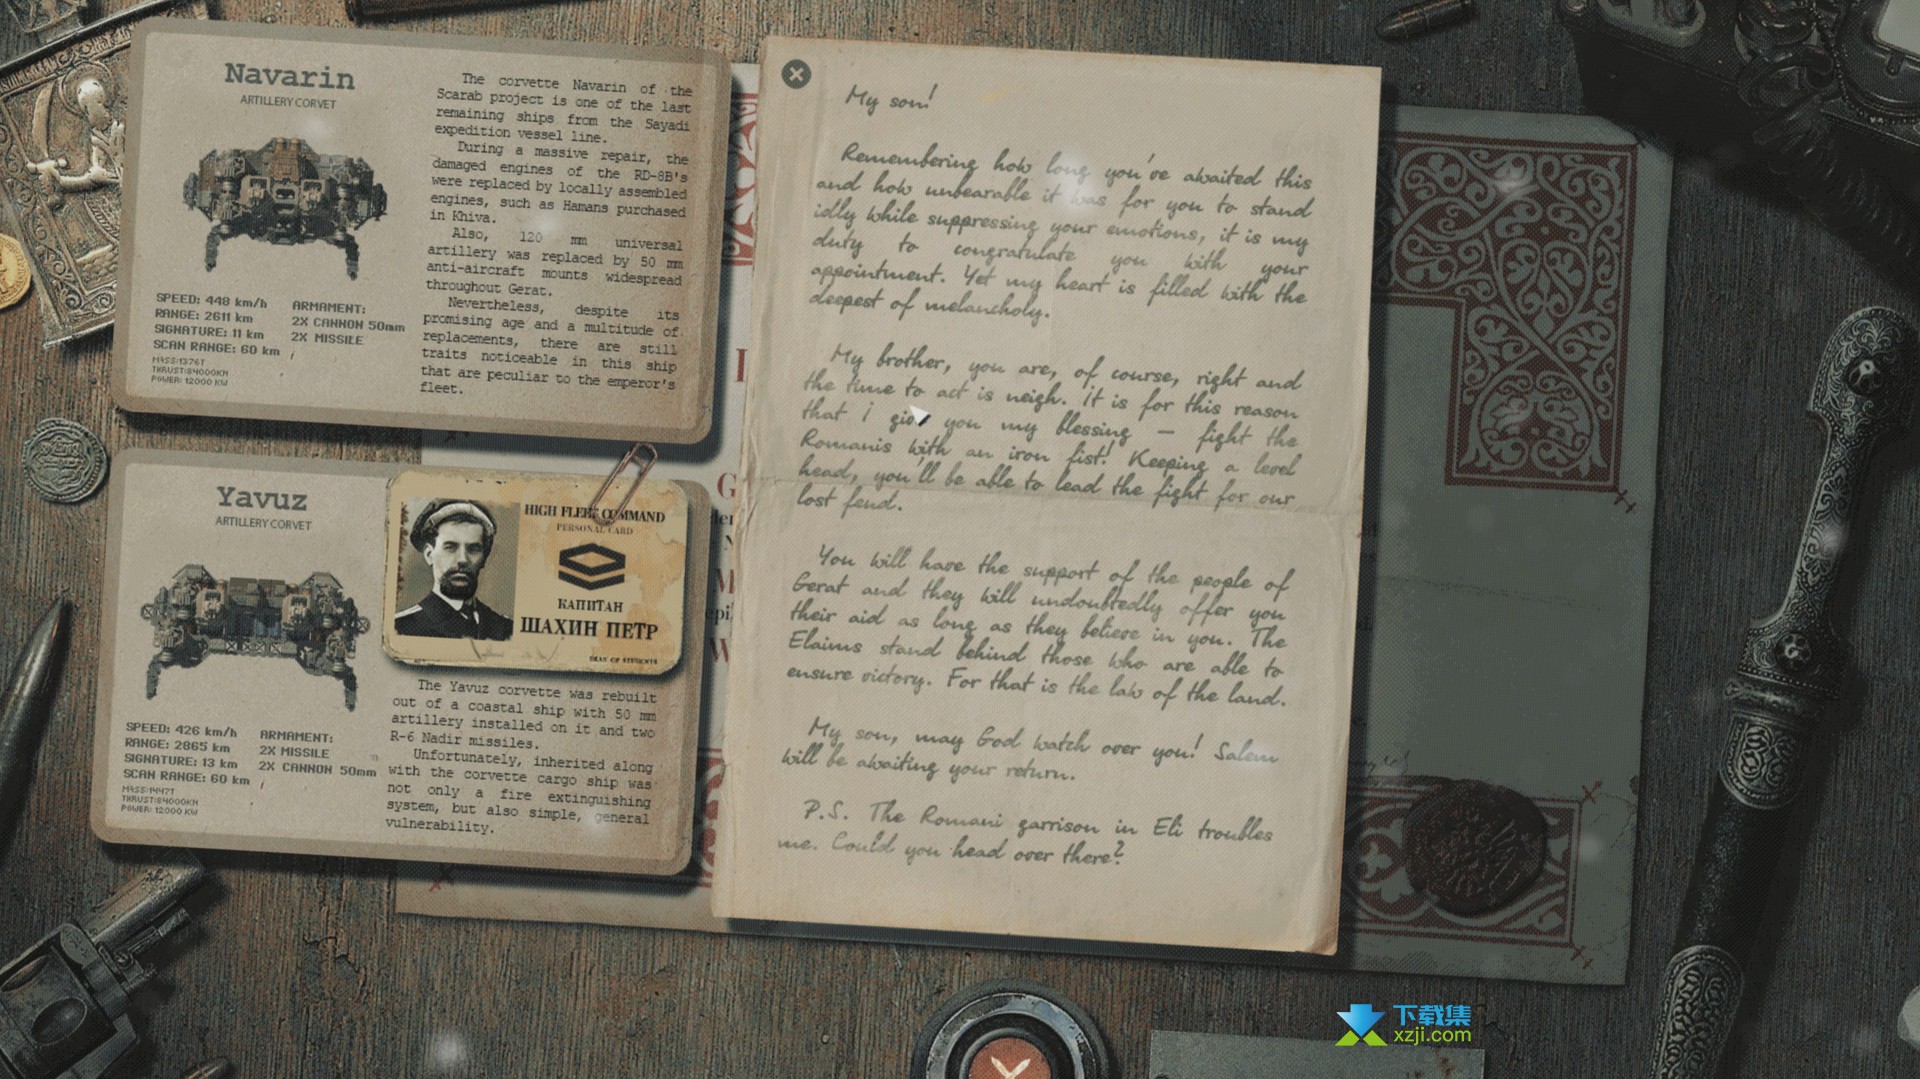 Navarin
ARTILLERY CORVET
The corvette Navarin of the
Scarab project is one of the last
remaining ships from the Sayadi
expedition vessel line.
During a massive repair, the
damaged engines of the RD-8B's
were replaced by locally assembled
engines, such as Hamans purchased
in Khiva.
Also, 120 mm universal
artillery was replaced by 50 mm
anti-aircraft mounts widespread
throughout Gerat.
Nevertheless, despite its
promising age and a multitude of
replacements, there are still
traits noticeable in this ship
that are peculiar to the emperor's
fleet.
SPEED: 448 km/h
RANGE: 2611 km
SIGNATURE: 11 km
SCAN RANGE: 60 km
MASS:1376T
THRUST:84000KN
POWER: 12000 KW
ARMAMENT:
2X CANNON 50mm
2X MISSILE
Yavuz
ARTILLERY CORVET
HIGH FLEET COMMAND
PERSONAL CARD
КАПИТАН
ШАХИН ПЕТР
The Yavuz corvette was rebuilt
out of a coastal ship with 50 mm
artillery installed on it and two
R-6 Nadir missiles.
Unfortunately, inherited along
with the corvette cargo ship was
not only a fire extinguishing
system, but also simple, general
vulnerability.
SPEED: 426 km/h
RANGE: 2865 km
SIGNATURE: 13 km
SCAN RANGE: 60 km
MASS:1447T
THRUST:84000KN
POWER: 12000 KW
ARMAMENT:
2X MISSILE
2X CANNON 50mm
My son!
Remembering how long you've awaited this
and how unbearable it was for you to stand
idly while suppressing your emotions, it is my
duty to congratulate you with your
appointment. Yet my heart is filled with the
deepest of melancholy.
My brother, you are, of course, right and
the time to act is neigh. It is for this reason
that I give you my blessing – fight the
Romanis with an iron fist! Keeping a level
head, you'll be able to lead the fight for our
lost feud.
You will have the support of the people of
Gerat and they will undoubtedly offer you
their aid as long as they believe in you. The
Elaims stand behind those who are able to
ensure victory. For that is the law of the land.
My son, may God watch over you! Salem
will be awaiting your return.
P.S. The Romani garrison in Eli troubles
me. Could you head over there?
下载集
xzji.com